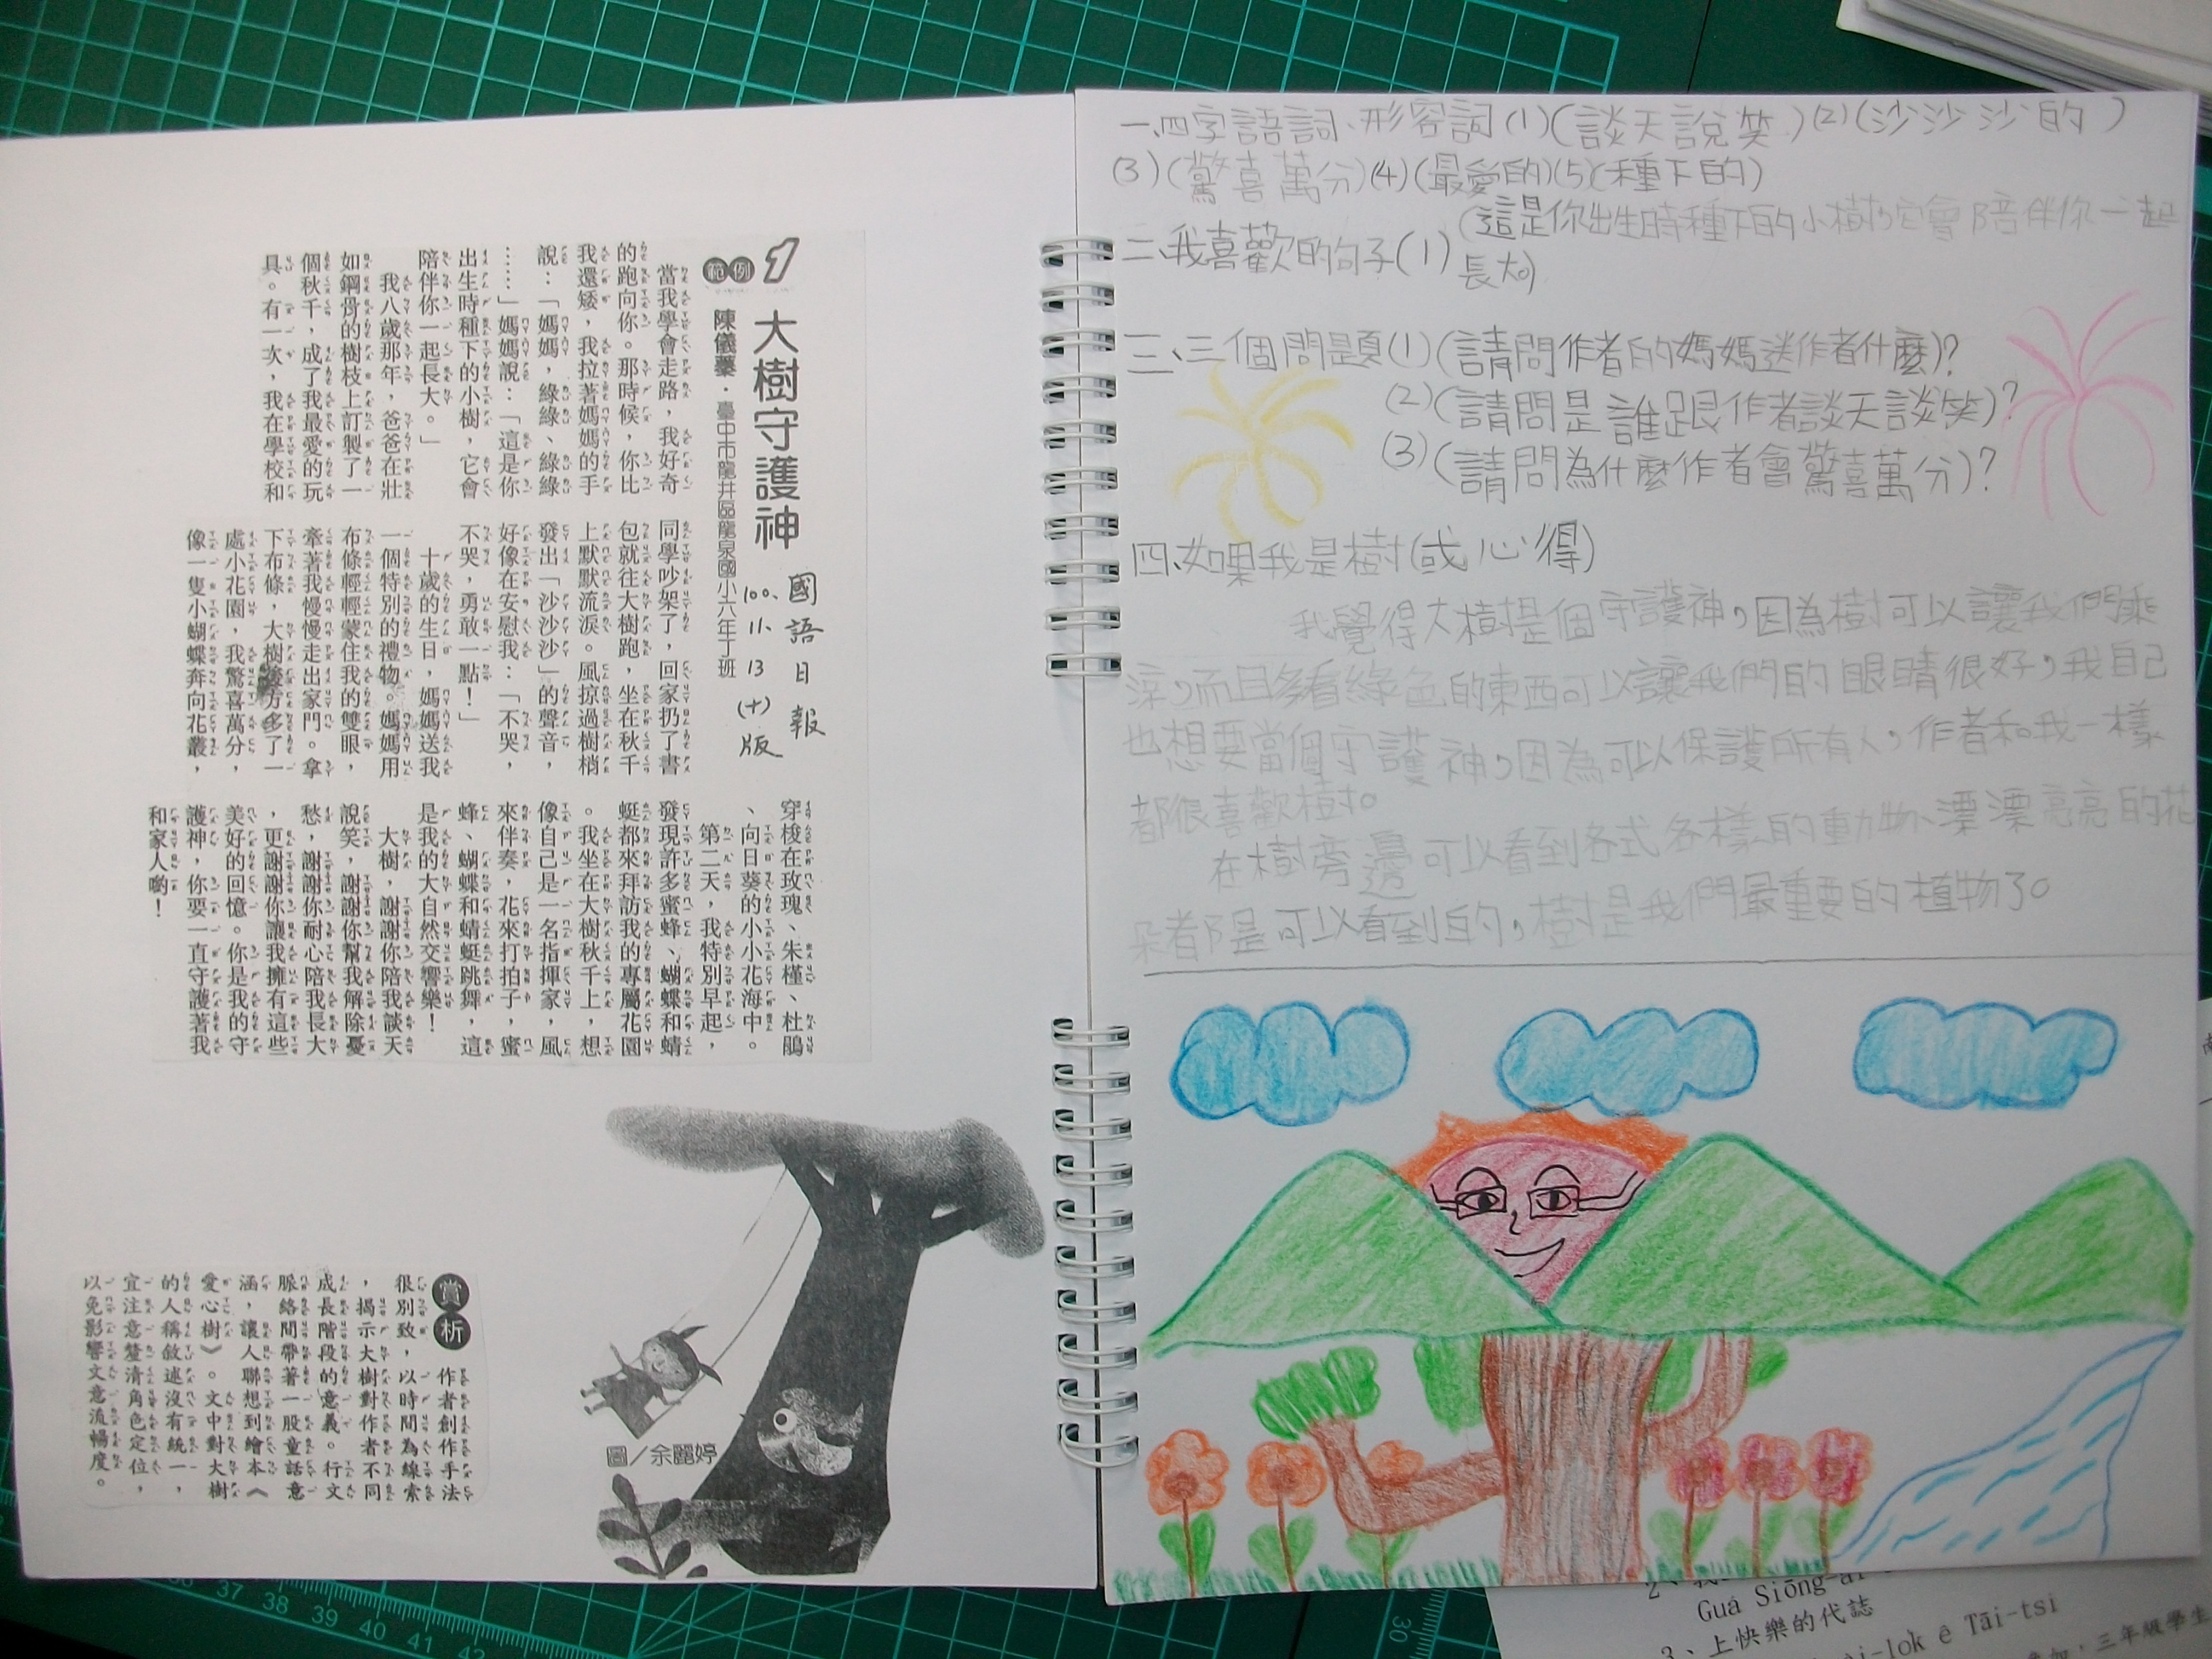 範例 1
大樹守護神
陳儀蓁．臺中市龍井區龍泉國小六年丁班
國語日報
100.11.13(十)版
當我學會走路，我好奇
的跑向你。那時候，你比
我還矮，我拉著媽媽的手
說：「媽媽，綠綠、綠綠
……」媽媽說：「這是你
出生時種下的小樹，它會
陪伴你一起長大。」
我八歲那年，爸爸在壯
如鋼骨的樹枝上訂製了一
個秋千，成了我最愛的玩
具。有一次，我在學校和
同學吵架了，回家扔了書
包就往大樹跑，坐在秋千
上默默流淚。風掠過樹梢
發出「沙沙沙」的聲音，
好像在安慰我：「不哭，
不哭，勇敢一點！」
十歲的生日，媽媽送我
一個特別的禮物。媽媽用
布條輕輕蒙住我的雙眼，
牽著我慢慢走出家門。拿
下布條，大樹後方多了一
處小花園，我驚喜萬分，
像一隻小蝴蝶奔向花叢，
穿梭在玫瑰、朱槿、杜鵑
、向日葵的小小花海中。
第二天，我特別早起，
發現許多蜜蜂、蝴蝶和蜻
蜓都來拜訪我的專屬花園
。我坐在大樹秋千上，想
像自己是一名指揮家，風
來伴奏，花來打拍子，蜜
蜂、蝴蝶和蜻蜓跳舞，這
是我的大自然交響樂！
大樹，謝謝你陪我談天
說笑，謝謝你幫我解除憂
愁，謝謝你耐心陪我長大
，更謝謝你讓我擁有這些
美好的回憶。你是我的守
護神，你要一直守護著我
和家人喲！
圖／余麗婷
賞析
作者創作手法
很別致，以時間為線索
，揭示大樹對作者不同
成長階段的意義。行文
脈絡間帶著一股童話意
涵，讓人聯想到繪本《
愛心樹》。文中對大樹
的人稱敘述沒有統一，
宜注意釐清角色定位，
以免影響文意流暢度。
一、四字語詞、形容詞(1)(談天說笑)(2)(沙沙沙的)
(3)(驚喜萬分)(4)(最愛的)(5)(種下的)
二、我喜歡的句子(1)(這是你出生時種下的小樹，它會陪伴你一起
長大。)
三、三個問題(1)(請問作者的媽媽送作者什麼)?
(2)(請問是誰跟作者談天談笑)?
(3)(請問為什麼作者會驚喜萬分)?
四、如果我是樹(或心得)
我覺得大樹是個守護神，因為樹可以讓我們乘
涼，而且多看綠色的東西可以讓我們的眼睛很好，我自己
也想要當個守護神，因為可以保護所有人，作者和我一樣
都很喜歡樹。
在樹旁邊可以看到各式各樣的動物、漂漂亮亮的花
朵都是可以看到的，樹是我們最重要的植物了。
36 37 38 39 40 41 42
30
Guá Siōng-ài
3、上快樂的代誌
i-lo̍k ê Tāi-tsì
參加，三年級學生